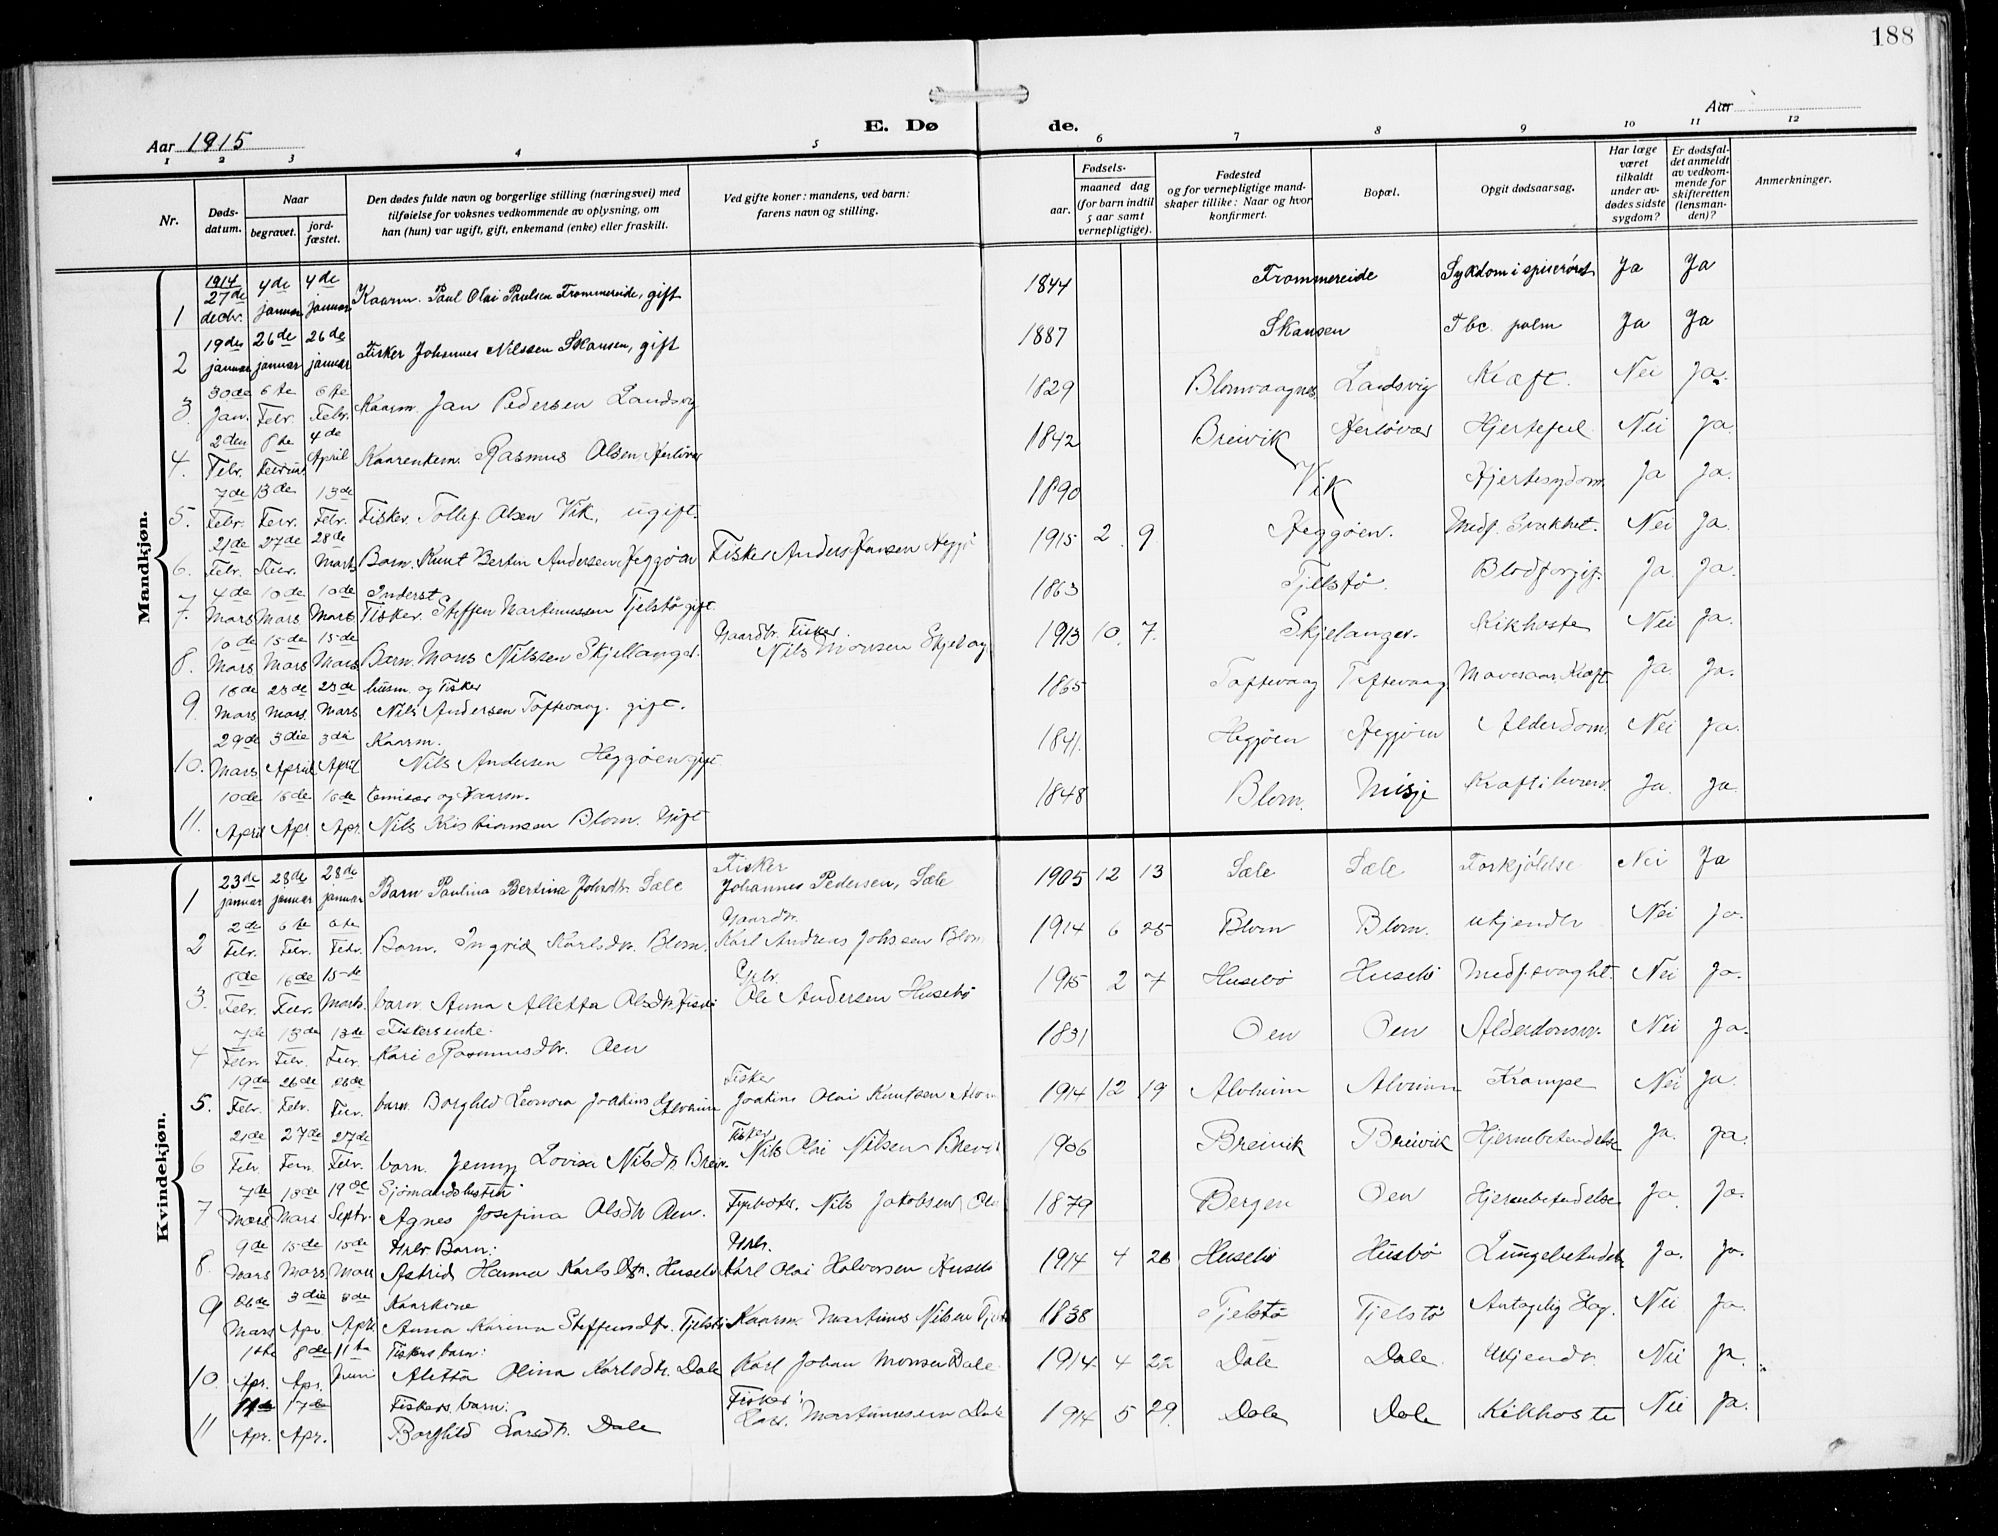 188
Aar 1915
E. Dø de.
Aar
1 2 3 4 5 6 7 8 9 10 11 12
Nr.
Døds-datum.
Naar
begravet.
jord-fæstet.
Den dødes fulde navn og borgerlige stilling (næringsvei) med
tilføielse for voksnes vedkommende av oplysning, om
han (hun) var ugift, gift, enkemand (enke) eller fraskilt.
Ved gifte koner: mandens, ved barn:
farens navn og stilling.
Fødsels-
aar.
maaned dag
(for barn indtil
5 aar samt
vernepligtige).
Fødested
og for vernepligtige mand-
skaper tillike: Naar og hvor
konfirmert.
Bopæl.
Opgit dødsaarsag.
Har læge
været
tilkaldt
under av-
dødes sidste
sygdom?
Er dødsfal-
det anmeldt
av vedkom-
mende for
skifteretten
(lensman-
den)?
Anmerkninger.
Mandkjøn.
1 1914 27de decbr. 4de januar 4de januar Kaarm. Paul Olai Paulsen Frommereide, gift 1844 Frommereide Sykdom i spiserøret Ja Ja
2 19de januar 26de januar 26de januar Fisker Johannes Nilssen Skansen, gift 1887 Skansen Tbc. pulm Ja Ja
3. 30de Jan. 6te Febr. 6te Febr. Kaarm. Jan Pedersen Landsvig 1829 Blomvaagnes Landsvig Kræft. Nei Ja.
4. 2den Febr. 8de Februar 4de April Kaarenkem. Rasmus Olsen Herløvær 1842 Breivik Herløvær Hjertefeil Nei Ja.
5. 7de Febr. 13de Febr. 13de Febr. Fisker Tollef Olsen Vik, ugift. 1890 Vik Hjertesydom. Ja Ja.
6. 21de Febr. 27de Febr. 28de Marts Barn. Knut Bertin Andersen Heggøen Fisker Anders Hansen Heggø 1915 2 9 Heggøen. Medf. Svakhet. Nei Ja.
7. 4de Mars 10de Mars 10de Mars Inderst Fisker. Steffen Martinussen Tjelstø gift. 1863 Tjelstø. Blodforgif. Ja. Ja.
8. 10de Mars 15de Mars 15de Mars Barn. Mons Nilssen Skjellanger. Gaardbr. Fisker. Nils Monsen 1913 10. 7. Skjelanger. Kikhoste Nei Ja.
9. 18de Mars 23de Mars. 23de Mars husm. og Fisker Nils Andersen Toftevaag. gift. 1865 Toftevaag Toftevaag Mavesaar, Kræft. Ja. Ja.
10. 29de Mars 3die April 3die April Kaarm. Nils Andersen Heggøen gift 1841. Heggøen Heggøen Alderdom. Nei Ja.
11. 10de April 16de Apr. 16de Apr. Emisær og Kaarm. Nils Kristiansen Blom. Ugift 1848 Blom. Misje Ja. Ja.
Kvindekjøn.
1 23de januar 28de januar 28de januar Barn Paulina Bertina Johsdtr. Sæle Fisker Johannes Pedersen, Sæle 1905 12 13 Sæle Sæle Forkjølelse Nei Ja
2 2de Febr. 6te Febr. 6te Febr. Barn. Ingrid Karlsdtr. Blom. Gaardbr. Karl Andreas Johssen Blom 1914 6 25 Blom Blom. ukjendt Nei Ja.
3. 8de Febr. 16de Febr. 15de Marts. barn. Anna Alletta Olsdtr. Gbr. Ole Andersen Husebø 1915 2 7 Husebø Husebø Medf. svaght. Nei Ja.
4 7de Febr. 13de Febr. 13de Febr. Fiskerenke. Kari Rasmusdtr. Oen 1831 Oen Oen Alderdomsv. Nei Ja.
5. 19de Febr. 26de Febr. 26de Febr. barn. Borghild Leonora Joakimsd. Alvheim Fisker Joakim Olai Knutsen 1914 12 19 Alvheim Alvheim Krampe Nei Ja.
6 21de Febr. 27de Febr. 27de Febr. barn. Jenny Lovise Nilsdtr. Breiv. Fisker Nils Olai Nilsen 1906 Breivik Breivik Hjernebetændelse Ja. Ja.
7 7de Mars 13de Mars 19de Septr. Sjømandshustru Agnes Josefina Olsdtr Oen. Fyrbøter. Nils Jakobsen 1879 Bergen Oen Hjernebetændelse Ja. Ja.
8. 9de Mars 15de Mars 15de Mars Barn: Astrid Hanna Karlsdtr. Husebø Karl Olai Halvorsen Husebø 1914 4 26 Husebø Husbø Lungebetændelse Ja. Ja.
9 26de Mars 3die Apr. 3de Apr. Kaarkone Anna Karina Steffensdtr. Tjelstø Kaarm. Martinus Nilsen 1838 Tjelstø Tjelstø Antagelig Slag. Nei Ja.
10. 1ste Apr. 8de Apr. 11te Juni Fiskers barn: Aletta Olina Karlsdtr. Dale Karl Johan Monsen Dale 1914 4 22 Dale Dale. Ukjendt. Nei Ja.
11 11de Apr. 17de Apr. Fiskers barn: Borghild Larsdtr. Dale Fisker: Lars. Martinussen Dale 1914 5 29. Dale Dale Kikhoste Nei Ja.